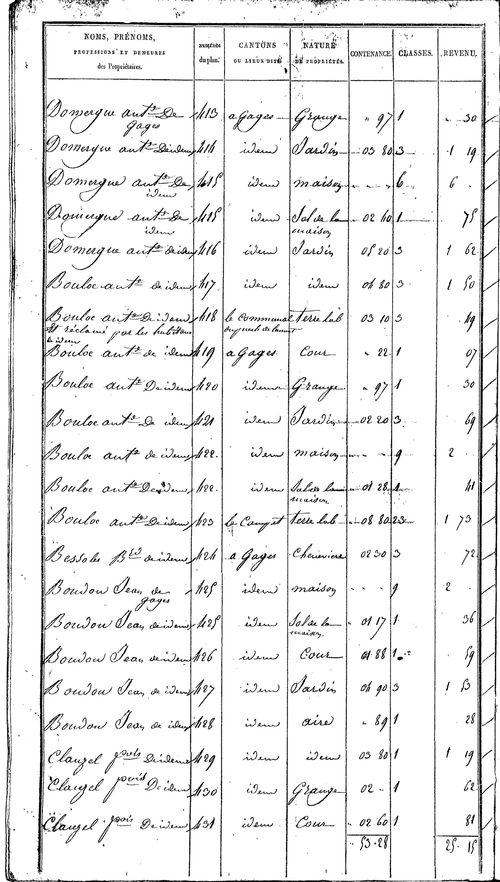 NOMS, PRÉNOMS, PROFESSIONS ET DEMEURES des Propriétaires. NUMÉROS du plan. CANTONS OU LIEUX DITS NATURE DE PROPRIÉTÉS. CONTENANCE. CLASSES. REVENU.
Domergue ant.ne De gages 413 a Gages Grange " 97 1 " 30
Domergue ant.ne De idem 414 idem Jardin 03 80 3 1 19
Domergue ant.ne De idem 415 idem maison - - 6 6 "
Domergue ant.ne De idem 415 idem Sol de la maison 02 40 1 75
Domergue ant.ne de idem 416 idem Jardin 05 20 3 1 62
Bouloc ant.ne de idem 417 idem idem 04 80 3 1 50
Bouloc ant.ne De idem 418 le Communal terre lab 03 10 3 49
Et réclamé par les habitans de idem
Bouloc ant.ne de idem 419 a Gages Cour " 22 1 07
Bouloc ant.ne De idem 420 idem Grange " 97 1 30
Bouloc ant.ne De idem 421 idem Jardin 02 20 3 69
Bouloc ant.ne de idem 422 idem maison - - 9 2 "
Bouloc ant.ne De idem 422 idem Sol de la maison 01 28 1 41
Bouloc ant.ne De idem 423 le Campet terre lab 08 80 23 1 73
Bessoles de idem 424 a Gages Cheneviere 02 30 3 72
Boudou Jean de gages 425 idem maison - - 9 2 "
Boudou Jean de idem 425 idem Sol de la maison 01 17 1 36
Boudou Jean de idem 426 idem Cour 01 88 1 59
Boudou Jean de idem 427 idem Jardin 04 90 3 1 53
Boudou Jean de idem 428 idem aire " 89 1 28
Clauzel fçois De idem 429 idem idem 03 80 1 1 19
Clauzel fçois De idem 430 idem Grange 02 - 1 62
Clauzel fçois De idem 431 idem Cour 02 60 1 81
53.28 25.15